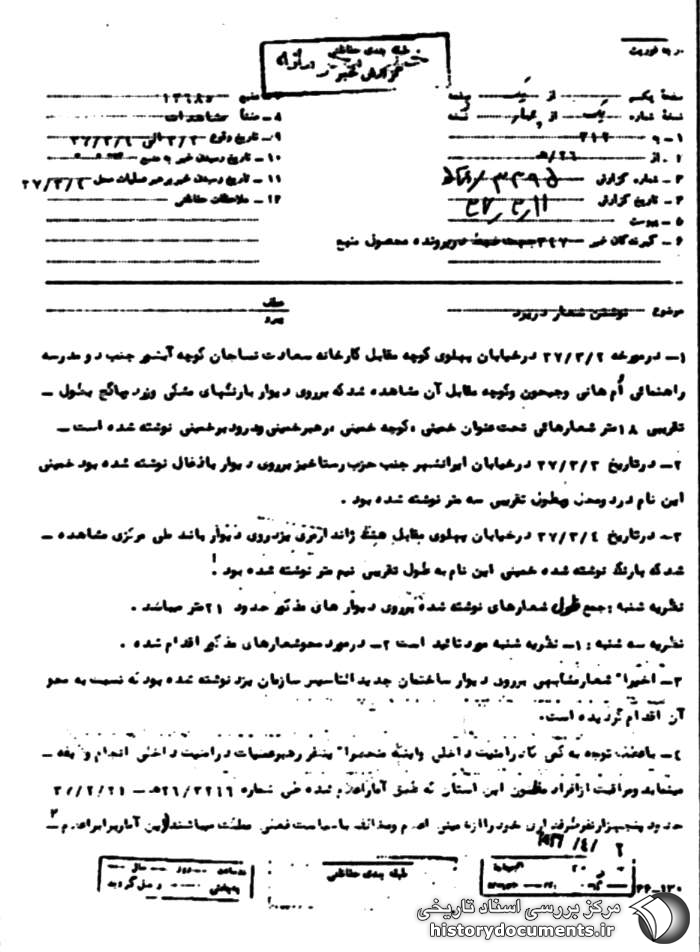 طبقه بندی حفاظتی
گزارش خبر
صفحهٔ یکم از یک صفحه
نسخهٔ شماره یک از چهار نسخه
۱ـ به ۳۱۲
۲ـ از
۳ـ شماره گزارش
۴ـ تاریخ گزارش
۵ـ پیوست
۶ـ گیرندگان خبر
پرونده محصول منبع
۸ـ منشأ مشاهدات
۹ـ تاریخ وقوع
۱۰ـ تاریخ رسیدن خبر به منبع
۱۱ـ تاریخ رسیدن خبر به رهبر عملیات محل ۳۷/۳/۴
۱۲ـ ملاحظات حفاظتی
موضوع نوشتن شعار در یزد
عطف
پیرو
۱ـ در مورخه ۳۷/۳/۲ در خیابان پهلوی کوچه مقابل کارخانه سعادت نساجان کوچه آبشور جنب دو مدرسه
راهنمائی اُم هانی و جیحون و کوچه مقابل آن مشاهده شد که بر روی دیوار با رنگهای مشکی و زرد بطول ـ
تقریبی ۱۸ متر شعارهائی تحت عنوان خمینی ، کوچه خمینی ، رهبر خمینی و درود بر خمینی نوشته شده است ـ
۲ـ در تاریخ ۳۷/۳/۳ در خیابان ایرانشهر جنب حزب رستاخیز بر روی دیوار با ذغال نوشته شده بود خمینی
این نام در دو محل و بطول تقریبی سه متر نوشته شده بود .
۳ـ در تاریخ ۳۷/۳/۴ در خیابان پهلوی مقابل ژاندارمری یزد روی دیوار بانک ملی مرکزی مشاهده ـ
شد که با رنگ نوشته شده خمینی این نام به طول تقریبی نیم متر نوشته شده بود !
نظریه شنبه : جمع طول شعارهای نوشته شده بر روی دیوارهای مذکور حدود ۲۱ متر میباشد .
نظریه سه شنبه : ۱ـ نظریه شنبه مورد تائید است ۲ـ در مورد محو شعارهای مذکور اقدام شده .
۳ـ اخیراً شعار مشابهی بر روی دیوار ساختمان جدید التاسیس سازمان یزد نوشته شده بود که نسبت به محو
آن اقدام گردیده است.
۴ـ با توجه به کمی کادر امنیت داخلی و اینکه منحصراً یکنفر رهبر عملیات در امنیت داخلی انجام وظیفه ـ
مینماید و مراقبت از افراد مظنون این استان که طبق آمار اعلام شده طی شماره
حدود پنجهزار نفر طرفداری خود را از خمینی اعلام و مخالف با سیاست فعلی مملکت میباشند این آمار برابر اعلام
طبقه بندی حفاظتی
مرکز بررسی اسناد تاریخی
historydocuments.ir